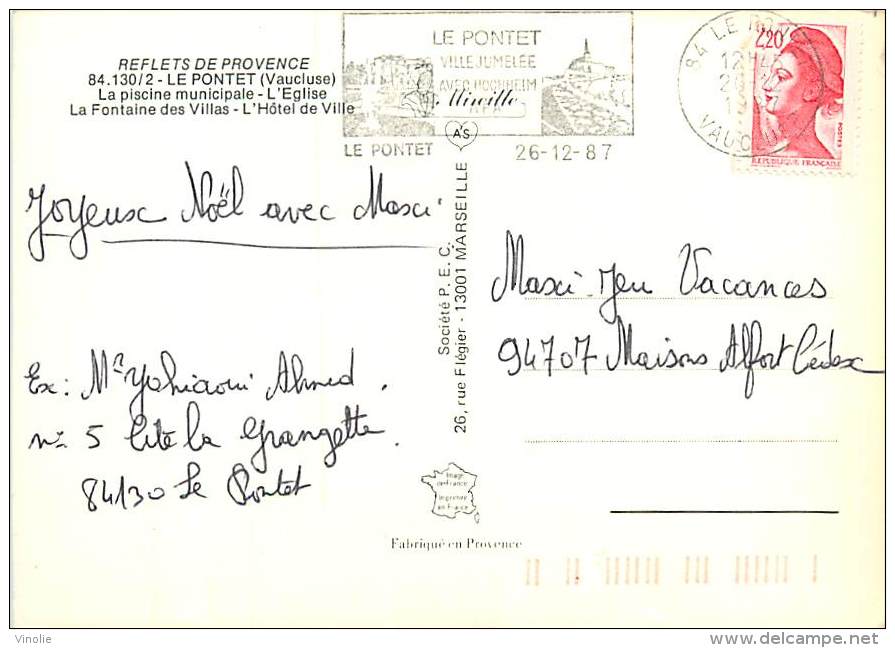 REFLETS DE PROVENCE
84.130/2 - LE PONTET (Vaucluse)
La piscine municipale - L'Eglise
La Fontaine des Villas - L'Hôtel de Ville
LE PONTET
VILLE JUMELÉE
AVEC HOCHHEIM
Mireille
LE PONTET
26-12-87
84 LE PONTET
VAUCLUSE
2,20
POSTES
REPUBLIQUE FRANÇAISE
A'S
Joyeux Noël avec Maxi
Société P.E.C.
26, rue Flégier - 13001 MARSEILLE
Maxi-Jeu Vacances
94707 Maisons Alfort Cédex
Ex: Mr Yahiaoui Ahmed.
n° 5 Cité la Grangette.
84130 Le Pontet
Image
de France
Imprimée
en France
Fabriqué en Provence
Vinolie
delcampe.net